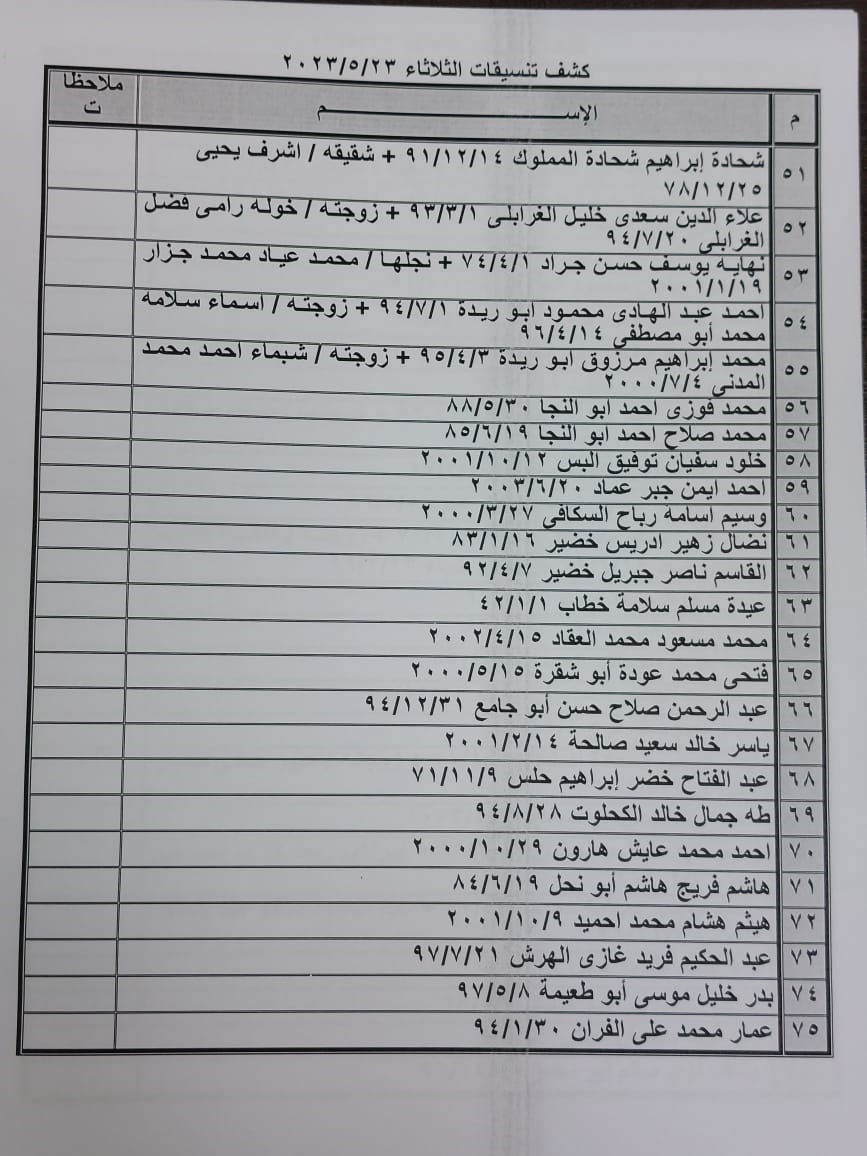 كشف تنسيقات الثلاثاء ٢٠٢٣/٥/٢٣
م الإســـــــــم ملاحظا
ت
٥١ شحادة إبراهيم شحادة المملوك ٩١/١٢/١٤ + شقيقه / اشرف يحيى
٧٨/١٢/٢٥
٥٢ علاء الدين سعدى خليل الغرابلى ٩٣/٣/١ + زوجته / خوله رامى فضل
الغرابلى ٩٤/٧/٢٠
٥٣ نهايه يوسف حسن جراد ٧٤/٤/١ + نجلها / محمد عياد محمد جزار
٢٠٠١/١/١٩
٥٤ احمد عبد الهادى محمود ابو ريدة ٩٤/٧/١ + زوجته / اسماء سلامه
محمد أبو مصطفى ٩٦/٤/١٤
٥٥ محمد إبراهيم مرزوق ابو ريدة ٩٥/٤/٣ + زوجته / شيماء احمد محمد
المدنى ٢٠٠٠/٧/٤
٥٦ محمد فوزى احمد ابو النجا ٨٨/٥/٣٠
٥٧ محمد صلاح احمد ابو النجا ٨٥/٦/١٩
٥٨ خلود سفيان توفيق البس ٢٠٠١/١٠/١٢
٥٩ احمد ايمن جبر عماد ٢٠٠٣/٦/٢٠
٦٠ وسيم اسامة رباح السكافى ٢٠٠٠/٣/٢٧
٦١ نضال زهير ادريس خضير ٨٣/١/١٦
٦٢ القاسم ناصر جبريل خضير ٩٢/٤/٧
٦٣ عيدة مسلم سلامة خطاب ٤٢/١/١
٦٤ محمد مسعود محمد العقاد ٢٠٠٢/٤/١٥
٦٥ فتحى محمد عودة أبو شقرة ٢٠٠٠/٥/١٥
٦٦ عبد الرحمن صلاح حسن أبو جامع ٩٤/١٢/٣١
٦٧ ياسر خالد سعيد صالحة ٢٠٠١/٢/١٤
٦٨ عبد الفتاح خضر إبراهيم حلس ٧١/١١/٩
٦٩ طه جمال خالد الكحلوت ٩٤/٨/٢٨
٧٠ احمد محمد عايش هارون ٢٠٠٠/١٠/٢٩
٧١ هاشم فريج هاشم أبو نحل ٨٤/٦/١٩
٧٢ هيثم هشام محمد احميد ٢٠٠١/١٠/٩
٧٣ عبد الحكيم فريد غازى الهرش ٩٧/٧/٢١
٧٤ بدر خليل موسى أبو طعيمة ٩٧/٥/٨
٧٥ عمار محمد على الفران ٩٤/١/٣٠